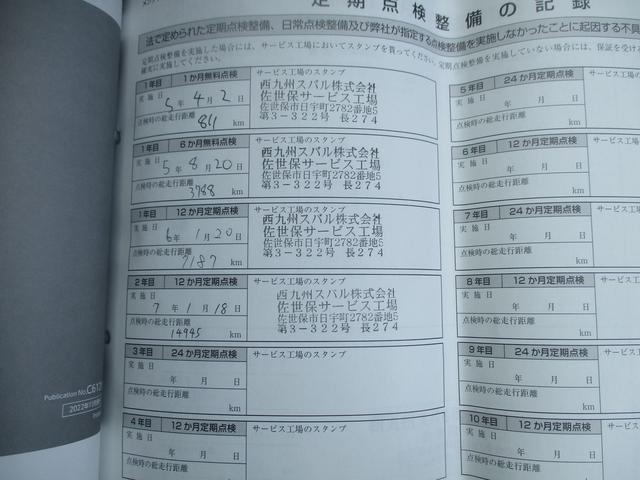 定期点検整備の記録
法で定められた定期点検整備、日常点検整備及び弊社が指定する点検整備を実施しなかったことに起因する不具
定期点検整備を実施した場合には、サービス工場においてスタンプを貰ってください。定期点検整備を実施していない場合には、保証を受け
確実に実施してください。
1年目 1か月無料点検
サービス工場のスタンプ
実施日
5年 4月 2日
点検時の総走行距離
811 km
西九州スバル株式会社
佐世保サービス工場
佐世保市日宇町2782番地5
第3-322号 長274
1年目 6か月無料点検
サービス工場のスタンプ
実施日
5年 8月 20日
点検時の総走行距離
3788 km
西九州スバル株式会社
佐世保サービス工場
佐世保市日宇町2782番地5
第3-322号 長274
1年目 12か月定期点検
サービス工場のスタンプ
実施日
6年 1月 20日
点検時の総走行距離
7187 km
西九州スバル株式会社
佐世保サービス工場
佐世保市日宇町2782番地5
第3-322号 長274
2年目 12か月定期点検
サービス工場のスタンプ
実施日
7年 1月 18日
点検時の総走行距離
14945 km
西九州スバル株式会社
佐世保サービス工場
佐世保市日宇町2782番地5
第3-322号 長274
3年目 24か月定期点検
サービス工場のスタンプ
実施日
年 月 日
点検時の総走行距離
km
4年目 12か月定期点検
サービス工場のスタンプ
実施日
年 月 日
点検時の総走行距離
km
5年目 24か月定期点検
サービス工場のス
実施日
年 月 日
点検時の総走行距離
km
6年目 12か月定期点検
サービス工場
実施日
年 月 日
点検時の総走行距離
km
7年目 24か月定期点検
サービス工
実施日
年 月 日
点検時の総走行距離
km
8年目 12か月定期点検
サービス
実施日
年 月 日
点検時の総走行距離
km
9年目 24か月定期点検
サービス
実施日
年 月 日
点検時の総走行距離
km
10年目 12か月定期点検
サービ
実施日
年 月 日
点検時の総走行距離
km
Publication No.C612